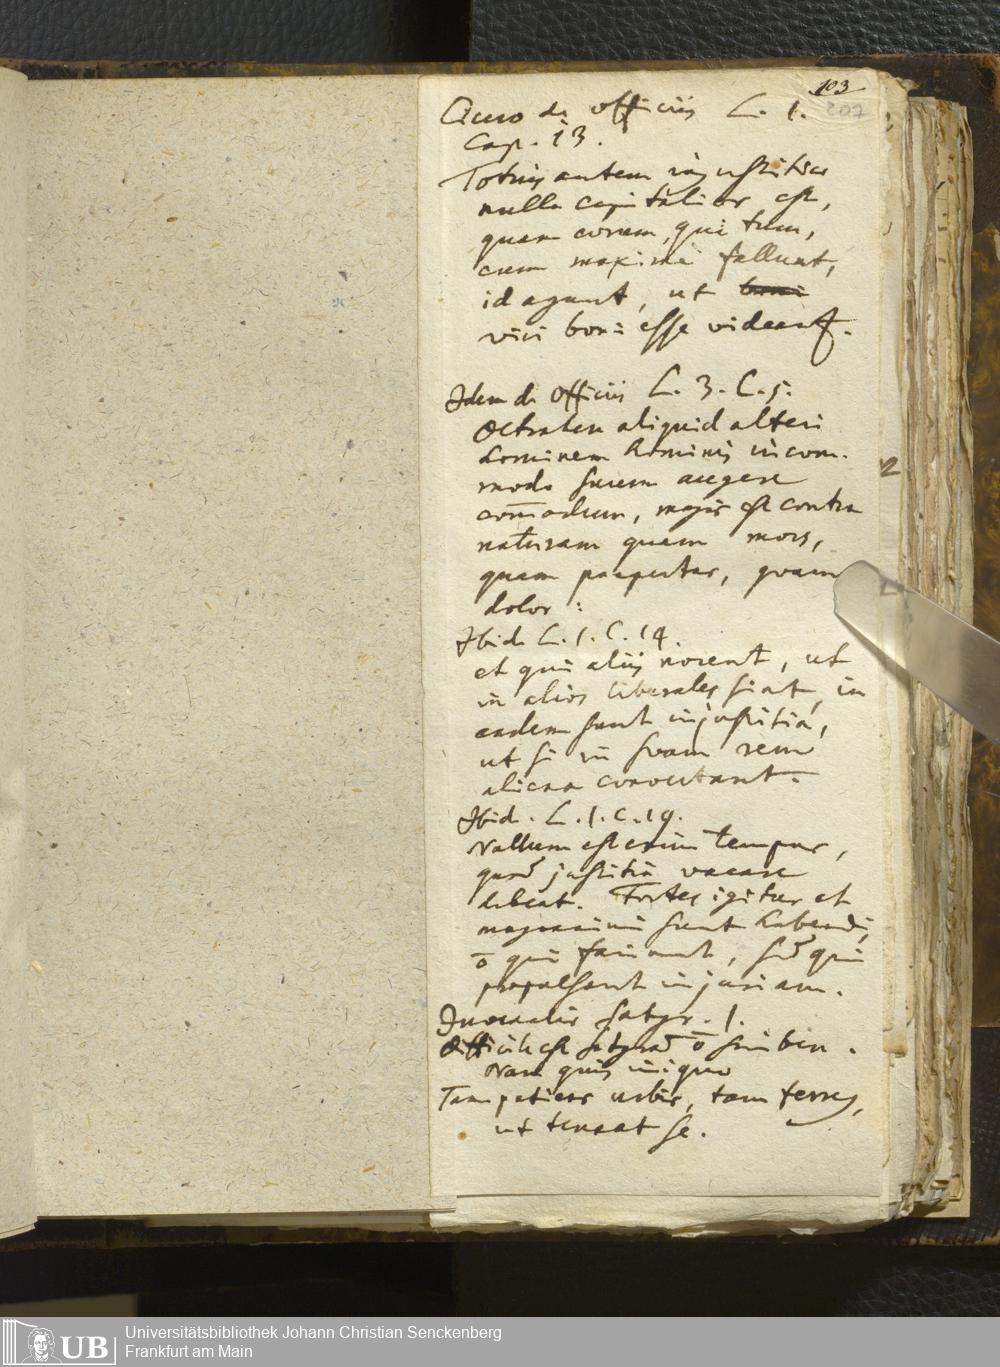 103
207
Cicero de officiis L. 1.
Cap. 13.
Totius autem injustitiae
nulla capitalior est,
quam eorum, qui tum,
cum maxime fallunt,
id agunt, ut boni
viri boni esse videant.
Idem de Officiis L. 3. C. 5.
Detrahere aliquid alteri
hominem hominis incom-
modo suum augere
com̄odum, magis est contra
naturam quam mors,
quam paupertas, quam
dolor :
Ibid. L. 1. C. 14.
et qui aliis nocent, ut
in alios liberales sint, in
eadem sunt injustitia,
ut si in suam rem
aliena convertant.
Ibid. L. 1. C. 19.
Nullum est enim tempus,
quod justitia vacare
debeat. Fortes igitur et
magnanimi sunt habendi,
ō qui faciunt, sed qui
propulsant injuriam.
Juvenalis Satyr. 1.
Difficile est satyram ō scribere.
Nam quis iniquae
Tam patiens urbis, tam ferreus,
ut teneat se.
UB
Universitätsbibliothek Johann Christian Senckenberg
Frankfurt am Main